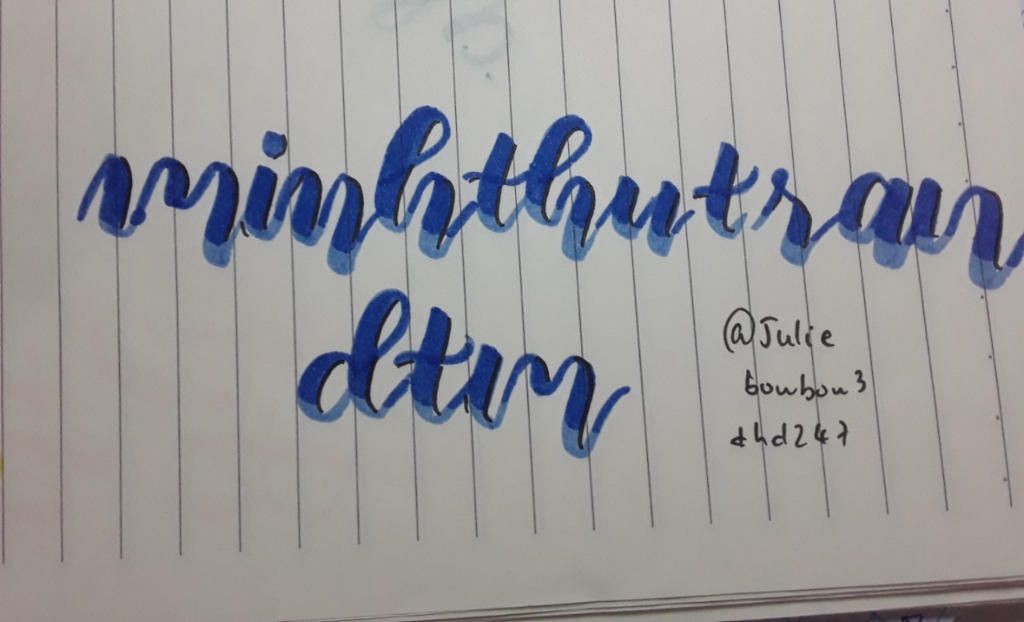 minhthutran
dtm
@Julie
bonbon3
thd247